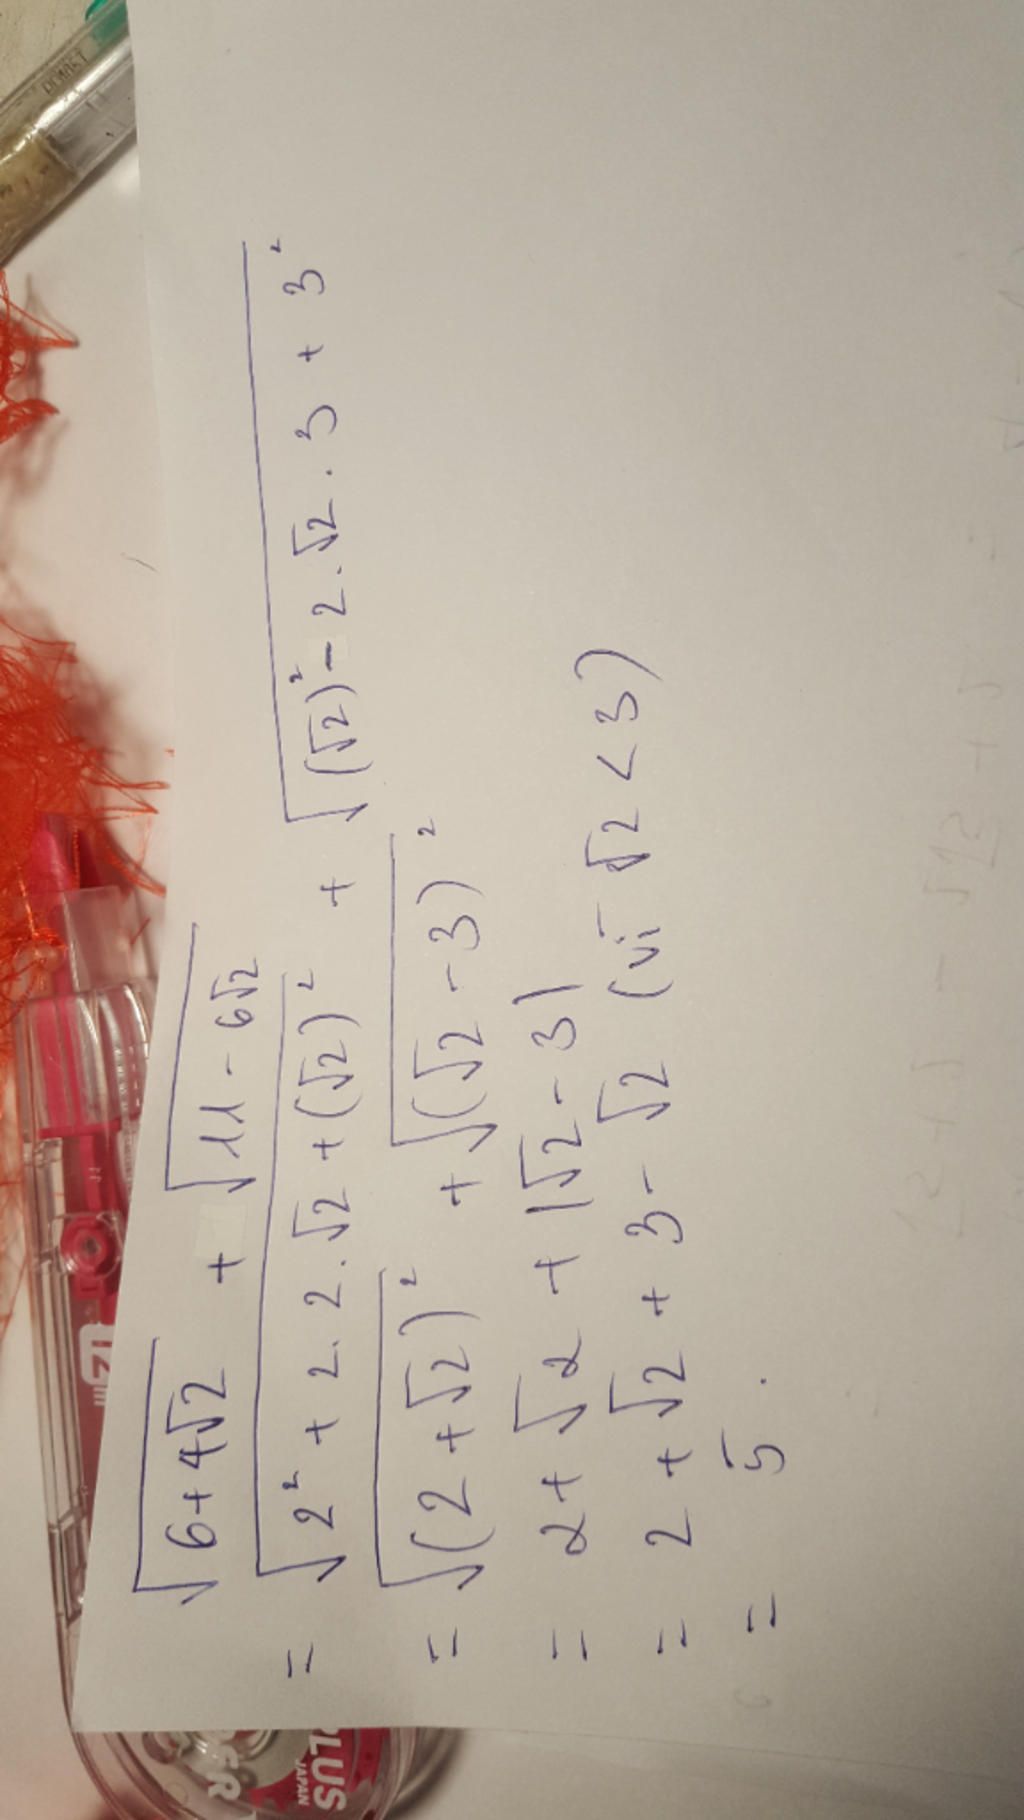 √(6+4√2) + √(11-6√2)
= √(2² + 2.2.√2 + (√2)²) + √((√2)² - 2.√2.3 + 3²)
= √((2+√2)²) + √((√2-3)²)
= 2+√2 + |√2-3|
= 2+√2+3-√2 (vì √2<3)
= 5.
PLUS
JAPAN